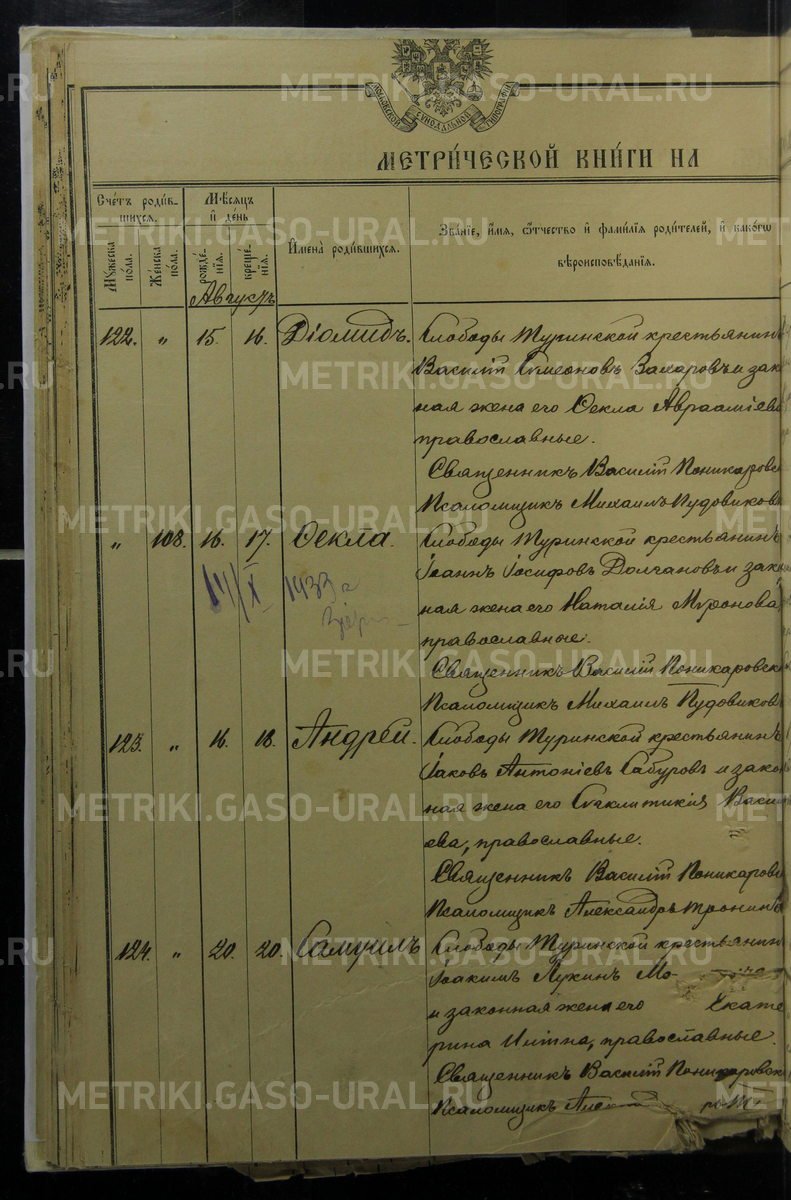 МОСКОВСКОЙ СѴНОДАЛЬНОЙ ТѴПОГРАФІИ
МЕТРИ́ЧЕСКОЙ КНИ́ГИ НА
Сче́тъ роди́в-
шихся.
Мꙋ́жеска
по́ла.
Же́нска
по́ла.
Мѣ́сяцъ
и҆ де́нь
рожде́-
нія.
креще́-
нія.
И҆мена̀ роди́вшихся.
Зва́ніе, и҆́мя, ѻ҆́тчество и҆ фами́лія роди́телей, и҆ како́гѡ
вѣроисповѣ́данія.
Августъ
122. " 15. 16. Діомидъ. Слободы Туринской крестьянинъ
Василій Симеоновъ Захаровъ и зак
ная жена его Ѳекла Авраамiева
православные.
Священникъ Василій Поникаровс
Псаломщикъ Михаилъ Пудовиковъ
" 108. 16. 17. Ѳекла. Слободы Туринской крестьянинъ
Іоаннъ Іосифовъ Долгановъ и зако
ная жена его Наталія Мѵронова,
православные.
14/X 1933 г
Священникъ Василій Поникаровск
Псаломщикъ Михаилъ Пудовиковъ
123. " 16. 18. Андрей. Слободы Туринской крестьянинъ
Іаковъ Антоніевъ Сабуровъ и зако
ная жена его Сѵнклитикія Васил
ева, православные.
Священникъ Василій Поникаровс
Псаломщикъ Александръ Тронинъ
124. " 20. 20. Самуилъ Слободы Туринской крестьянин
Іоакимъ Лукинъ Мо
и законная жена его Екате
рина православные.
Священникъ Василій Поникаровск
Псаломщикъ Але
METRIKI.GASO-URAL.RU